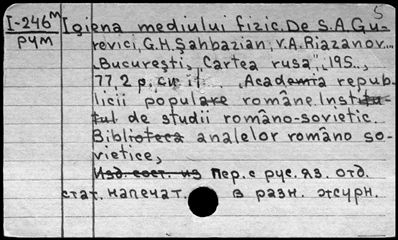 5
I-246м Igiena mediului fizic. De S.A. Gu-
рум revici, G.H. Şahbazian, V.A. Riazanov...
Bucureşti, "Cartea rusă", 195..,
77,2 p. cu il. Academia repub-
licii populare române. Institu-
tul de studii româno-sovietic.
Biblioteca analelor româno so-
vietice,
Изд. сост. из Пер. с рус. яз. отд.
стат. напечат. в разн. журн.